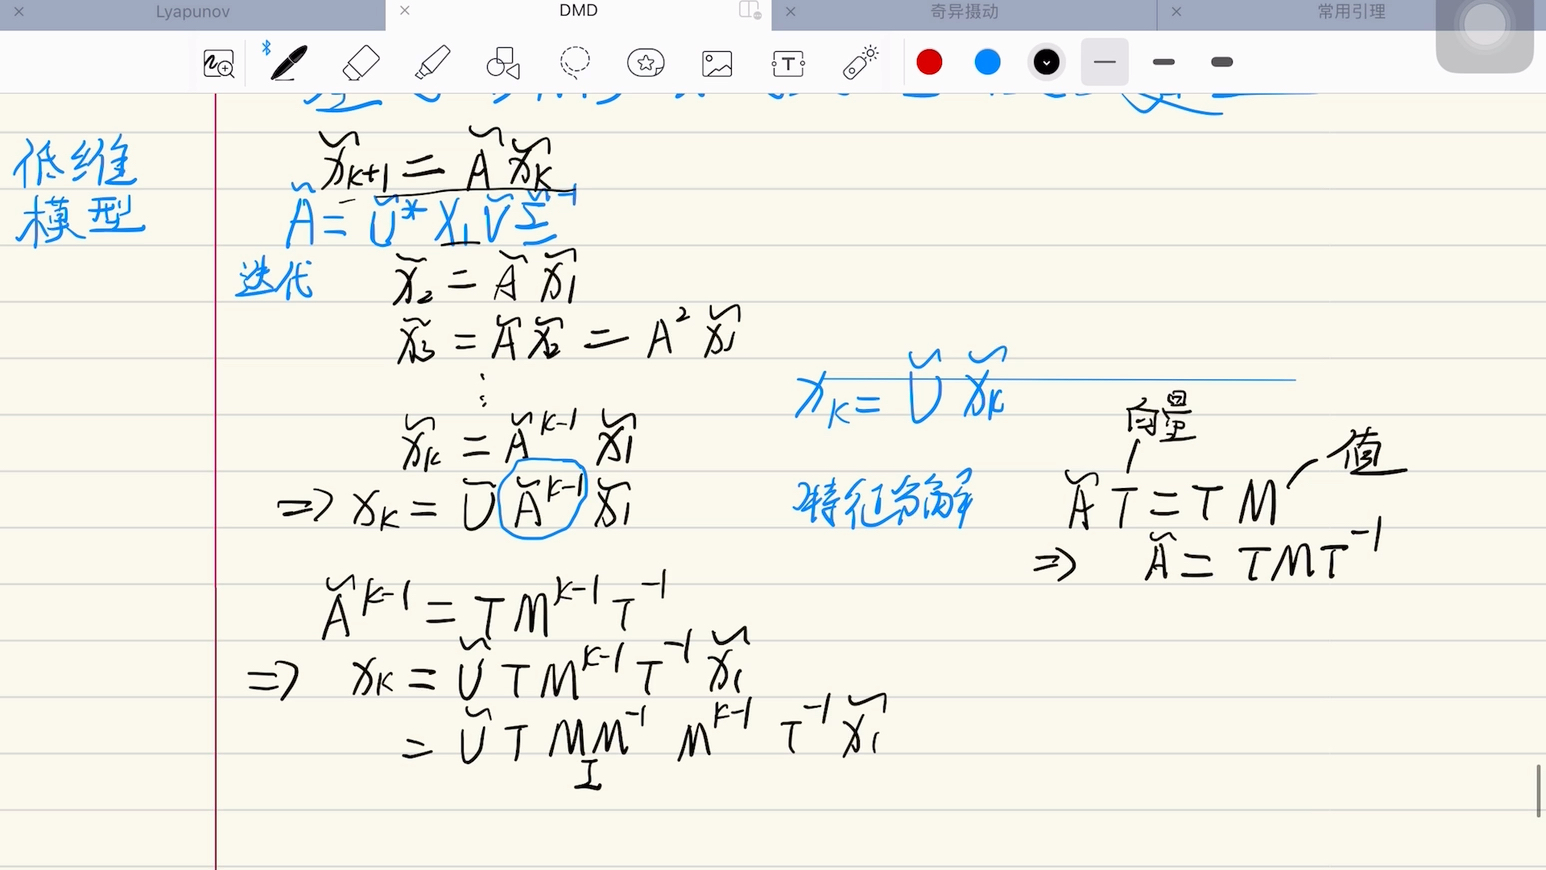 Lyapunov
DMD
奇异摄动
常用引理
低维
模型
x̃ₖ₊₁ = Ã x̃ₖ
Ã = Ũ* X₁ Ṽ Σ̃⁻¹
迭代
x̃₂ = Ã x̃₁
x̃₃ = Ã x̃₂ = A² x̃₁
⋮
x̃ₖ = Ãᵏ⁻¹ x̃₁
⇒ xₖ = Ũ Ãᵏ⁻¹ x̃₁
xₖ = Ũ x̃ₖ
向量
值
特征分解
Ã T = T M
⇒ Ã = T M T⁻¹
Ãᵏ⁻¹ = T Mᵏ⁻¹ T⁻¹
⇒ xₖ = Ũ T Mᵏ⁻¹ T⁻¹ x̃₁
= Ũ T M M⁻¹ Mᵏ⁻¹ T⁻¹ x̃₁
I